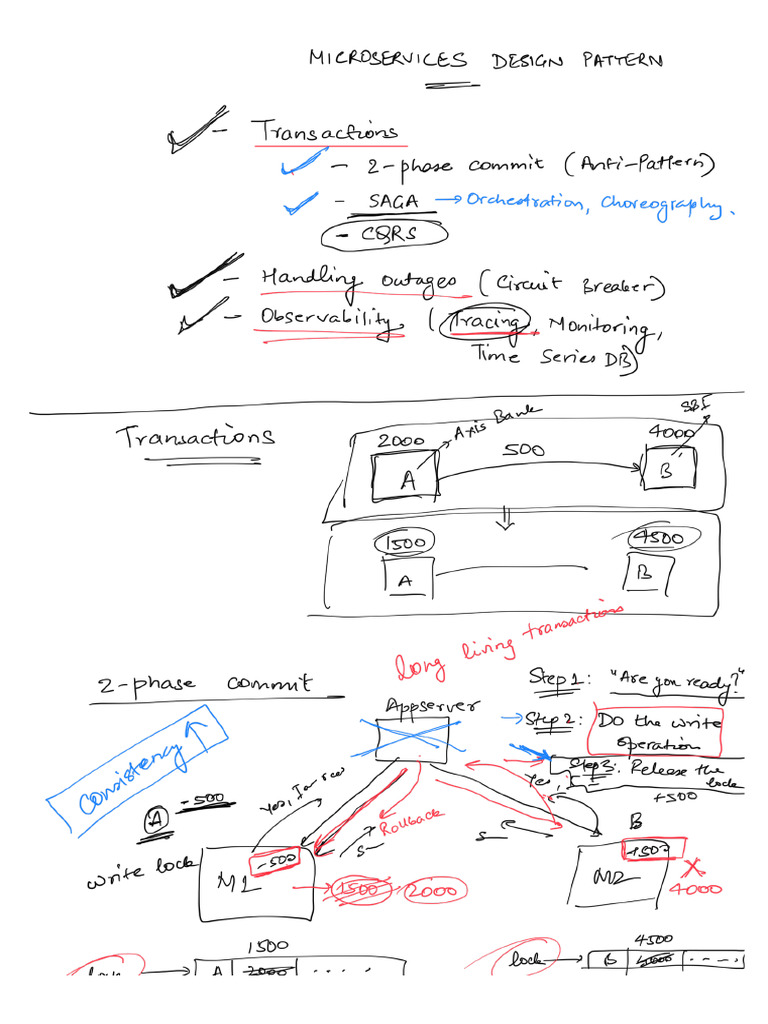 MICROSERVICES DESIGN PATTERN
- Transactions
- 2-phase commit (Anti-Pattern)
- SAGA → Orchestration, Choreography.
- CQRS
- Handling outages (Circuit Breaker)
- Observability (Tracing, Monitoring,
Time Series DB)
Transactions
2000 Axis Bank 4000 SBI
A 500 B
1500 4500
A B
long living transactions
2-phase commit
Step 1: "Are you ready?"
Appserver
→ Step 2: Do the write
operation
Step 3: Release the
lock
Consistency ↑
-500
A
Yes,
Yes,
+500
Rollback
B
5
5
write lock
M1 -500
→ 1500 2000
M2 +500
X
4000
1500
lock → A 2000 ....
4500
lock → B 4000 ....